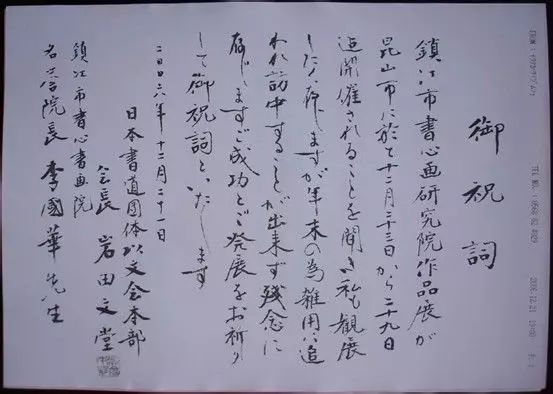 御祝詞
鎮江市書心画研究院作品展が
昆山市に於て十二月二十三日から二十九日
迄開催されることを聞き私も観展
したく存じますが年末の為雑用に追
われ訪中することが出来ず残念に
存じますご成功とご発展をお祈り
して御祝詞といたします
二〇〇六年十二月二十一日
日本書道団体以文会本部
会長 岩田文堂
鎮江市書心書画院
名誉院長 李國華先生